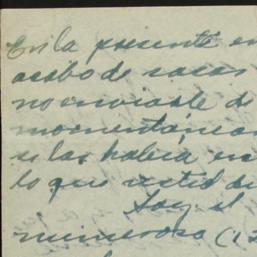 En la presente en
acabo de sacar
no enviarle de
momentánea
se las habia en
lo que usted de
Soy el
numeroso (13